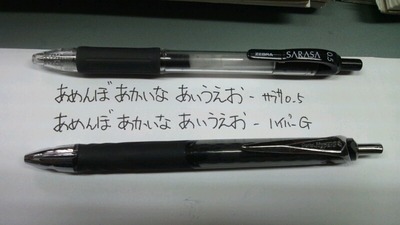 ZEBRA SARASA 0.5
あめんぼ あかいな あいうえお - サラサ0.5
あめんぼ あかいな あいうえお - ハイパーG